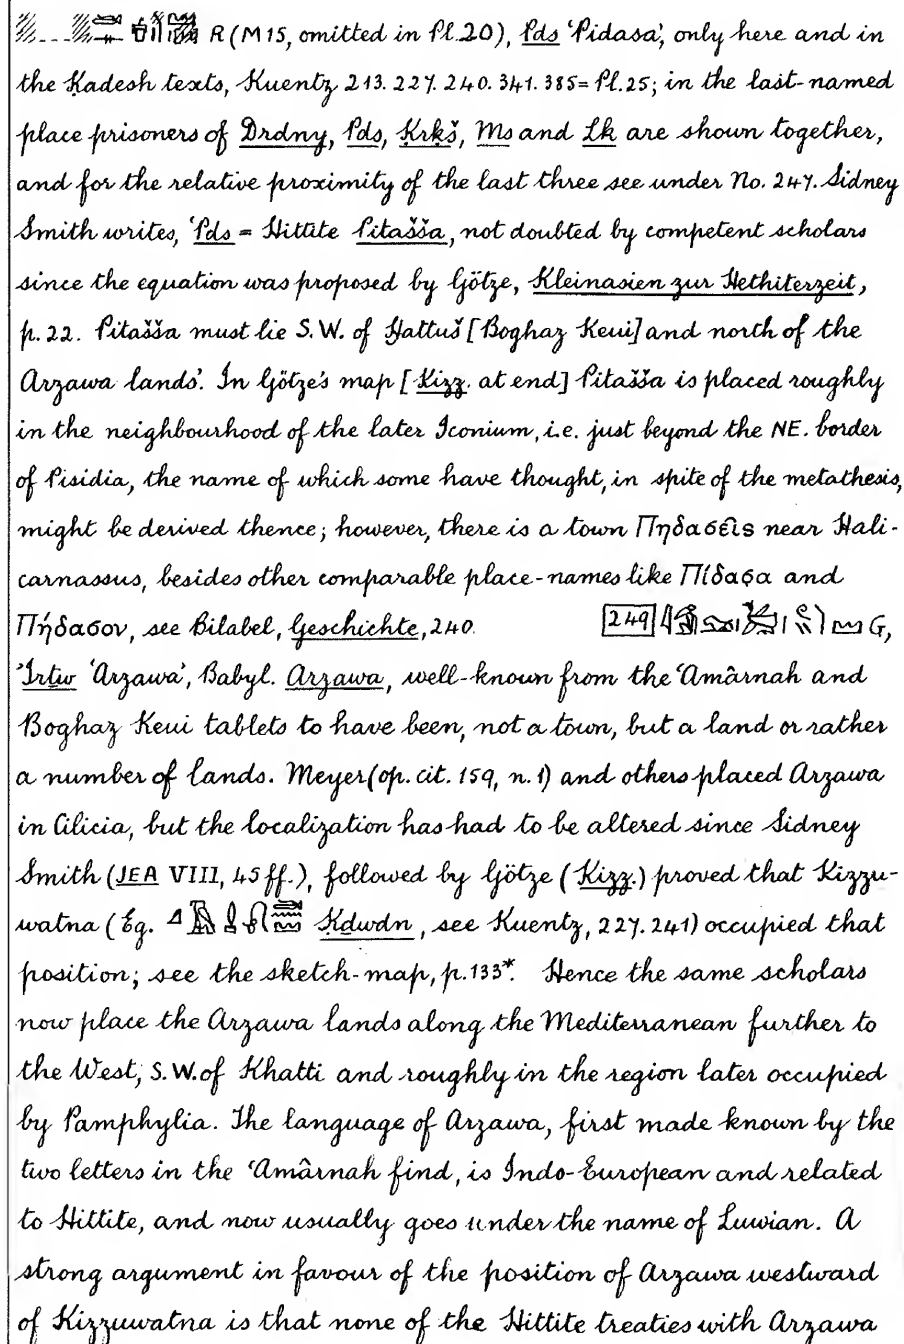 R (M15, omitted in Pl. 20), Pds ‘Pidasa’, only here and in
the Ḳadesh texts, Kuentz 213. 227. 240. 341. 385 = Pl. 25; in the last-named
place prisoners of Drdny, Pds, Ḳrḳš, Ms and Lk are shown together,
and for the relative proximity of the last three see under No. 247. Sidney
Smith writes, ‘Pds = Hittite Pitašša, not doubted by competent scholars
since the equation was proposed by Götze, Kleinasien zur Hethiterzeit,
p. 22. Pitašša must lie S.W. of Hattuš [Boghaz Keui] and north of the
Arzawa lands’. In Götze's map [Kizz. at end] Pitašša is placed roughly
in the neighbourhood of the later Iconium, i.e. just beyond the NE. border
of Pisidia, the name of which some have thought, in spite of the metathesis,
might be derived thence; however, there is a town Πηδασεῖς near Hali-
carnassus, besides other comparable place-names like Πίδασα and
Πήδασον, see Bilabel, Geschichte, 240. 249 G,
’Irtw ‘Arzawa’, Babyl. Arzawa, well-known from the ‘Amârnah and
Boghaz Keui tablets to have been, not a town, but a land or rather
a number of lands. Meyer (op. cit. 159, n. 1) and others placed Arzawa
in Cilicia, but the localization has had to be altered since Sidney
Smith (JEA VIII, 45 ff.), followed by Götze (Kizz.) proved that Kizzu-
watna (Eg. Ḳdwdn, see Kuentz, 227. 241) occupied that
position; see the sketch-map, p. 133*. Hence the same scholars
now place the Arzawa lands along the Mediterranean further to
the West, S.W. of Khatti and roughly in the region later occupied
by Pamphylia. The language of Arzawa, first made known by the
two letters in the ‘Amârnah find, is Indo-European and related
to Hittite, and now usually goes under the name of Luwian. A
strong argument in favour of the position of Arzawa westward
of Kizzuwatna is that none of the Hittite treaties with Arzawa